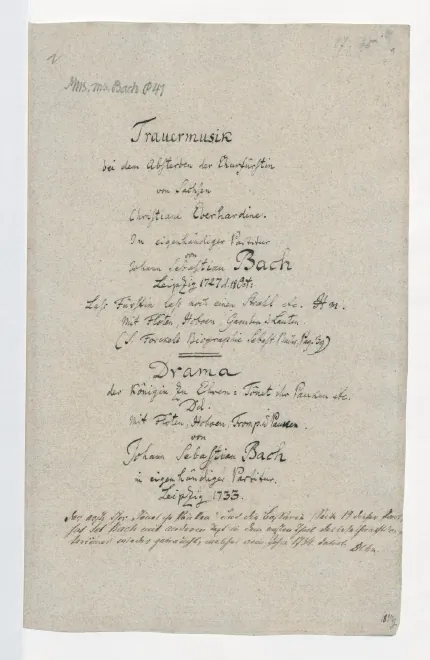 Mus. ms. Bach P 41
Trauermusik
bei dem Absterben der Churfürstin
von Sachsen
Christiane Eberhardine.
In eigenhändiger Partitur
von
Johann Sebastian Bach
Leipzig 1727 d. 18 Oct:
Lass Fürstin lass noch einen Strahl etc. H m.
Mit Flöten, Hoboen, Gamben u. Lauten.
(S. Forckels Biographie Sebast Bachs, Pag. 39)
Drama
der Königin zu Ehren: Tönet ihr Pauken etc.
D d.
Mit Flöten, Hoboen, Tromp u Pauken.
von
Johann Sebastian Bach
in eigenhändiger Partitur.
Leipzig 1733.
hat Bach mit anderem Text in dem ersten
wieder gebraucht, welches vom Jahr 1734 datirt. Dehn.